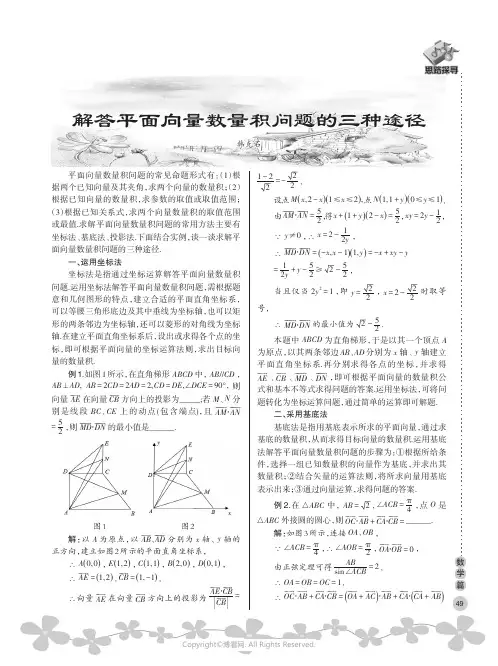 思路探寻
解答平面向量数量积问题的三种途径
平面向量数量积问题的常见命题形式有:(1)根
据两个已知向量及其夹角,求两个向量的数量积;(2)
根据已知向量的数量积,求参数的取值或取值范围;
(3)根据已知关系式,求两个向量数量积的取值范围
或最值.求解平面向量数量积问题的常用方法主要有
坐标法、基底法、投影法.下面结合实例,谈一谈求解平
面向量数量积问题的三种途径.
一、运用坐标法
坐标法是指通过坐标运算解答平面向量数量积
问题.运用坐标法解答平面向量数量积问题,需根据题
意和几何图形的特点,建立合适的平面直角坐标系,
可以等腰三角形底边及其中垂线为坐标轴,也可以矩
形的两条邻边为坐标轴,还可以菱形的对角线为坐标
轴.在建立平面直角坐标系后,设出或求得各个点的坐
标,即可根据平面向量的坐标运算法则,求出目标向
量的数量积.
例1.如图1所示,在直角梯形 ABCD 中, AB//CD ,
AB⊥AD, AB=2CD=2AD=2,CD=DE,∠DCE=90°, 则
向量 AE 在向量 CB 方向上的投影为_____;若 M、N 分
别是线段 BC、CE 上的动点(包含端点),且 AM·AN
=5/2,则 MD·DN 的最小值是_____.
E
N
D
C
M
A
B
y
E
N
D
C
M
A
B
x
图1
图2
解:以 A 为原点,以 AB、AD 分别为 x 轴、y 轴的
正方向,建立如图2所示的平面直角坐标系,
∴A(0,0), E(1,2), C(1,1), B(2,0), D(0,1),
∴AE=(1,2), CB=(1,-1).
∴向量 AE 在向量 CB 方向上的投影为 AE·CB/|CB| =
(1-2)/√2=-√2/2,
设点 M(x,2-x)(1≤x≤2),点 N(1,1+y)(0≤y≤1).
由 AM·AN=5/2,得x+(1+y)(2-x)=5/2,xy=2y-1/2.
∵ y≠0,∴x=2-1/2y,
∴ MD·DN=(-x,x-1)(1,y)=-x+xy-y
=1/2y+y-5/2≥√2-5/2,
当且仅当 2y²=1,即 y=√2/2, x=2-√2/2 时取等
号,
∴ MD·DN 的最小值为 √2-5/2.
本题中 ABCD 为直角梯形,于是以其一个顶点 A
为原点,以其两条邻边 AB、AD 分别为 x 轴、y 轴建立
平面直角坐标系.再分别求得各点的坐标,并求得
AE、CB、MD、DN,即可根据平面向量的数量积公
式和基本不等式求得问题的答案.运用坐标法,可将问
题转化为坐标运算问题,通过简单的运算即可解题.
二、采用基底法
基底法是指用基底表示所求的平面向量,通过求
基底的数量积,从而求得目标向量的数量积.运用基底
法解答平面向量数量积问题的步骤为:①根据所给条
件,选择一组已知数量积的向量作为基底,并求出其
数量积;②结合矢量的运算法则,将所求向量用基底
表示出来;③通过向量运算,求得问题的答案.
例2.在 △ABC 中, AB=√2, ∠ACB=π/4,点 O 是
△ABC 外接圆的圆心,则 OC·AB+CA·CB=_____.
解:如图3所示,连接 OA、OB,
∵ ∠ACB=π/4,∴∠AOB=π/2, OA·OB=0,
由正弦定理可得 AB/sin∠ACB=2,
∴OA=OB=OC=1,
∴OC·AB+CA·CB=(OA+AC)·AB+CA·(CA+AB)
数学篇
49
Copyright©博看网. All Rights Reserved.